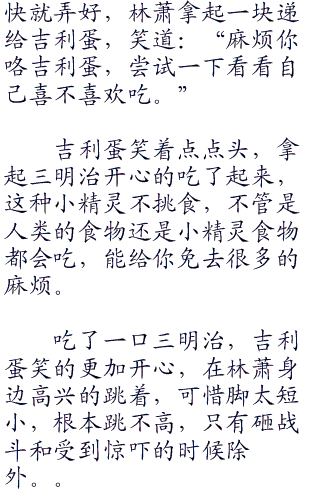 快就弄好，林萧拿起一块递
给吉利蛋，笑道：“麻烦你
咯吉利蛋，尝试一下看看自
己喜不喜欢吃。”
吉利蛋笑着点点头，拿
起三明治开心的吃了起来，
这种小精灵不挑食，不管是
人类的食物还是小精灵食物
都会吃，能给你免去很多的
麻烦。
吃了一口三明治，吉利
蛋笑的更加开心，在林萧身
边高兴的跳着，可惜脚太短
小，根本跳不高，只有砸战
斗和受到惊吓的时候除
外。。